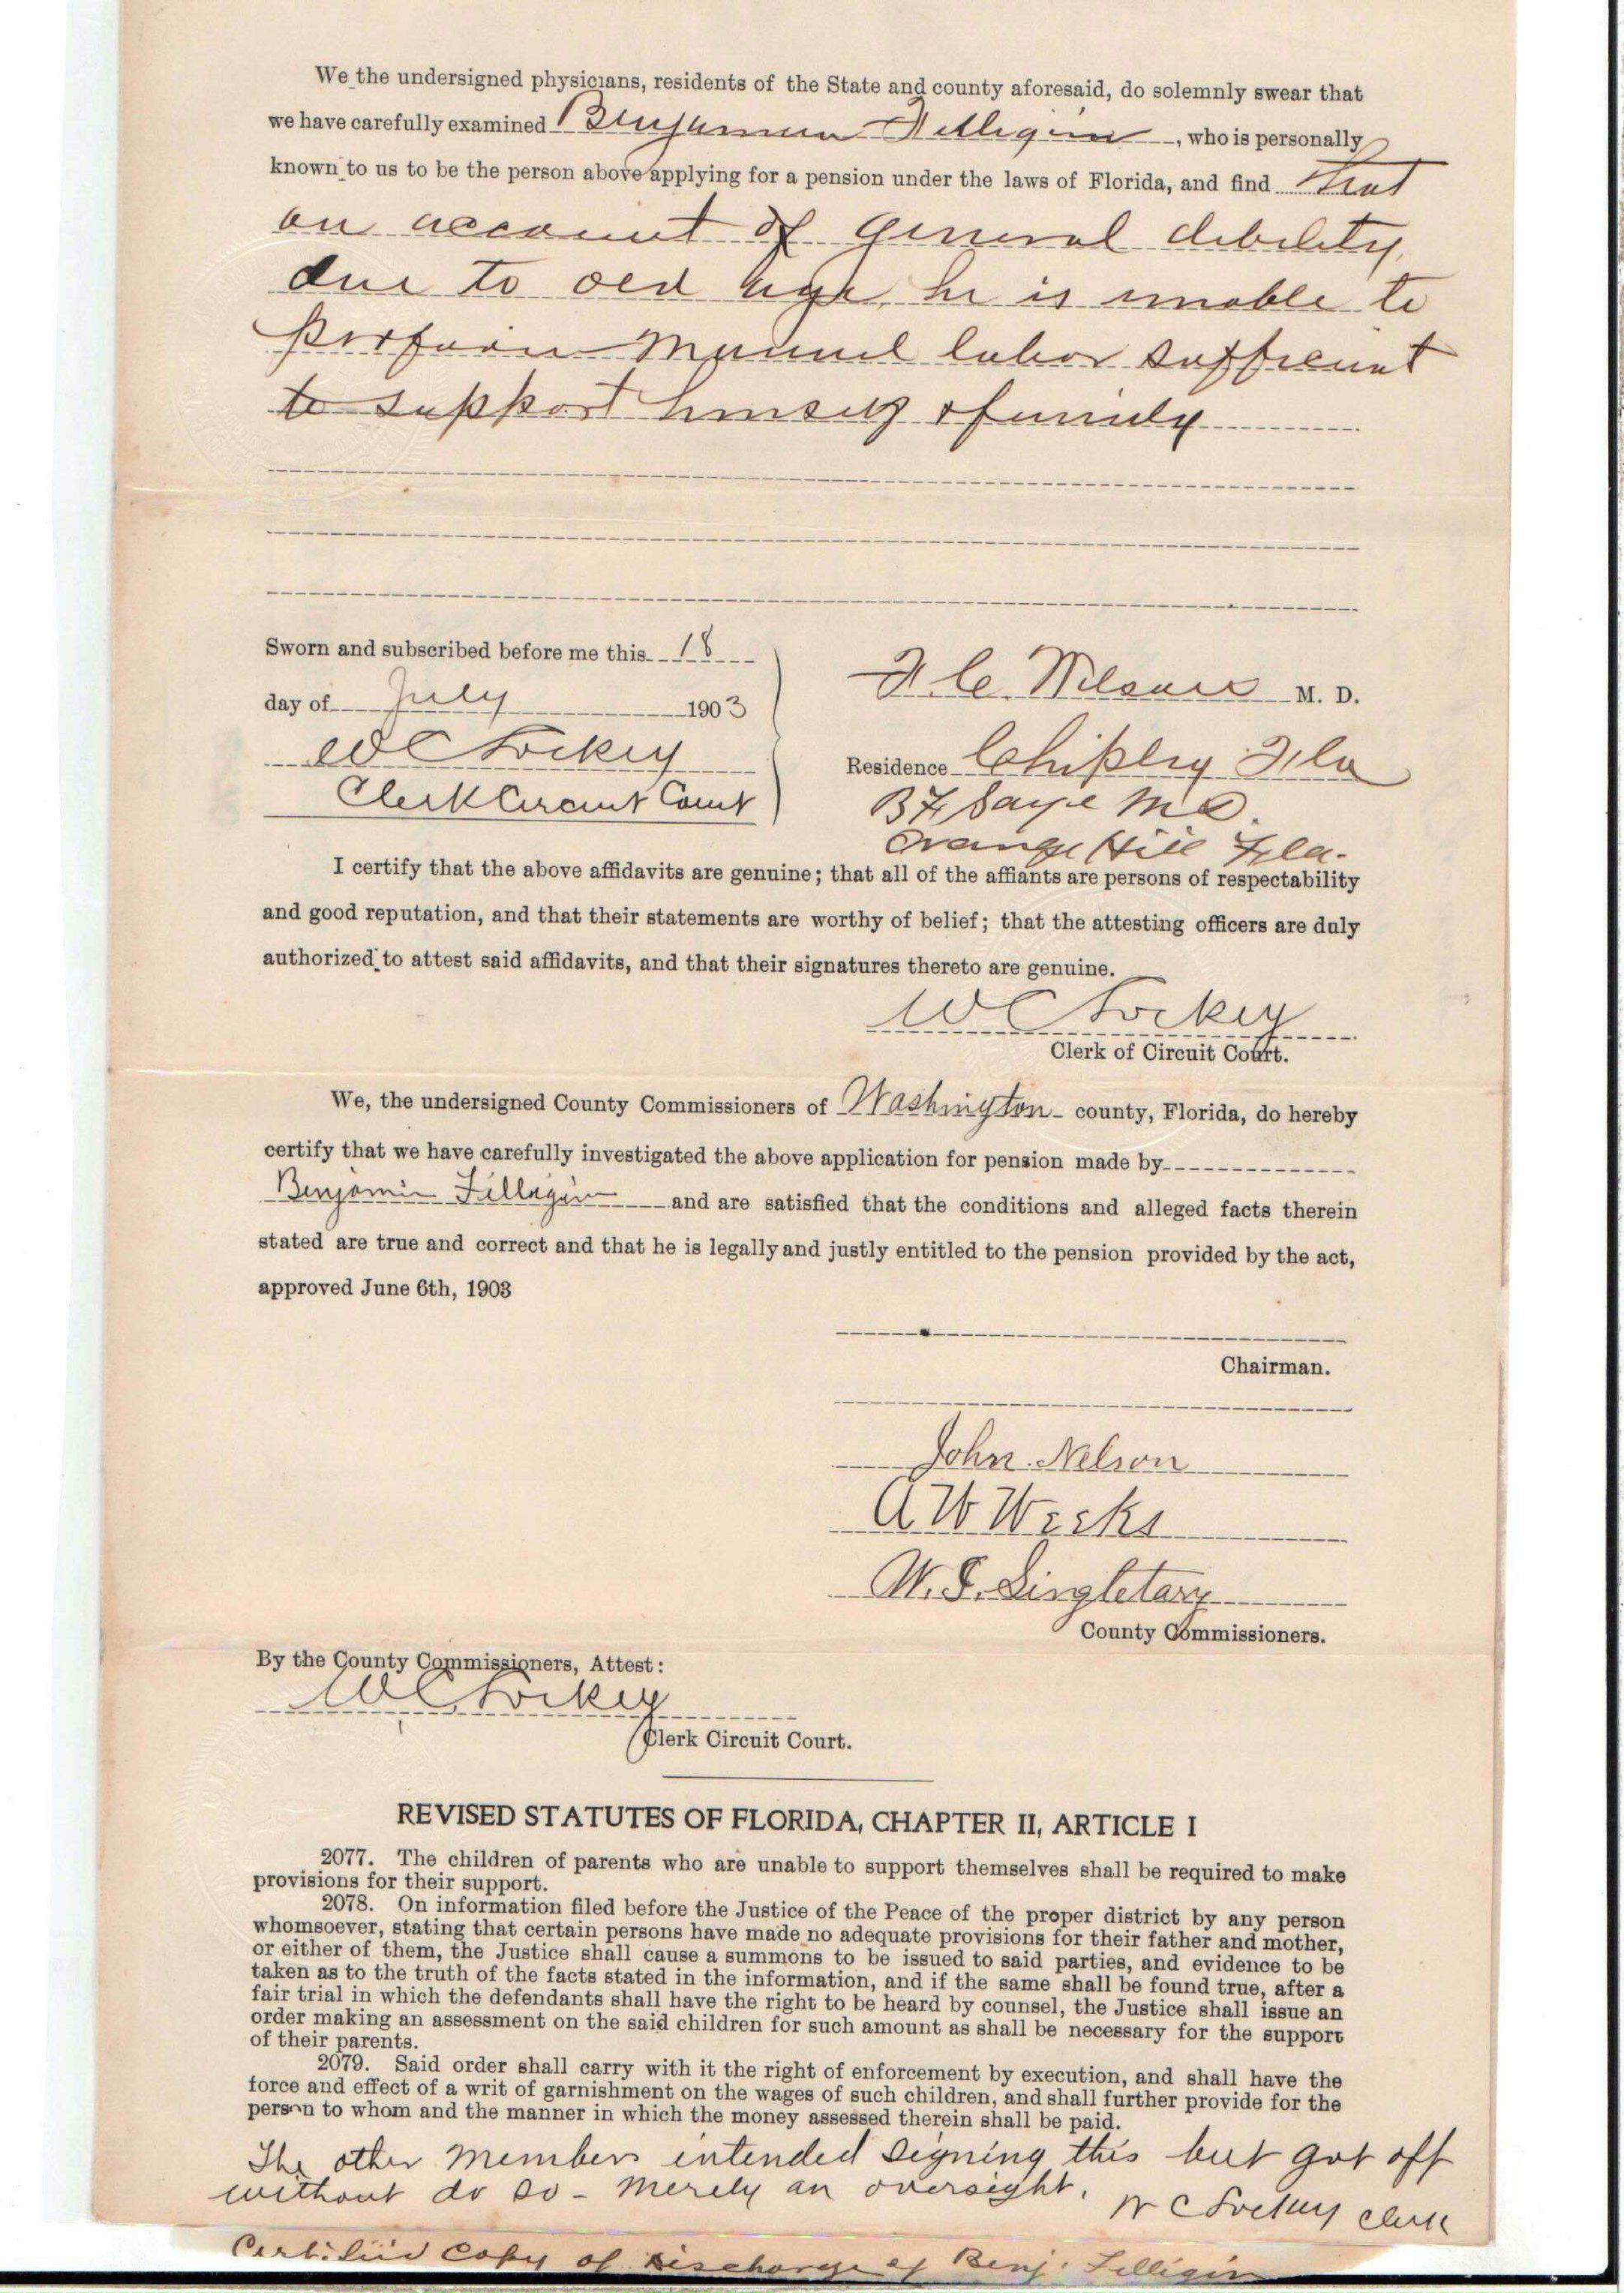 We the undersigned physicians, residents of the State and county aforesaid, do solemnly swear that
we have carefully examined Benjamin Filligim, who is personally
known to us to be the person above applying for a pension under the laws of Florida, and find that
on account of general debility,
due to old age, he is unable to
perform manuel labor sufficient
to support himself & family
Sworn and subscribed before me this 18
day of July 1903
W C Lockey
Clerk Circuit Court
F. C. Wilson M. D.
Residence Chipley Fla
B F Saye M D.
Orange Hill Fla.
I certify that the above affidavits are genuine; that all of the affiants are persons of respectability
and good reputation, and that their statements are worthy of belief; that the attesting officers are duly
authorized to attest said affidavits, and that their signatures thereto are genuine.
W C Lockey
Clerk of Circuit Court.
We, the undersigned County Commissioners of Washington county, Florida, do hereby
certify that we have carefully investigated the above application for pension made by
Benjamin Fillagim and are satisfied that the conditions and alleged facts therein
stated are true and correct and that he is legally and justly entitled to the pension provided by the act,
approved June 6th, 1903
Chairman.
John Nelson
A W Weeks
W. J. Singletary
County Commissioners.
By the County Commissioners, Attest:
W C Lockey
Clerk Circuit Court.
REVISED STATUTES OF FLORIDA, CHAPTER II, ARTICLE I
2077. The children of parents who are unable to support themselves shall be required to make
provisions for their support.
2078. On information filed before the Justice of the Peace of the proper district by any person
whomsoever, stating that certain persons have made no adequate provisions for their father and mother,
or either of them, the Justice shall cause a summons to be issued to said parties, and evidence to be
taken as to the truth of the facts stated in the information, and if the same shall be found true, after a
fair trial in which the defendants shall have the right to be heard by counsel, the Justice shall issue an
order making an assessment on the said children for such amount as shall be necessary for the support
of their parents.
2079. Said order shall carry with it the right of enforcement by execution, and shall have the
force and effect of a writ of garnishment on the wages of such children, and shall further provide for the
person to whom and the manner in which the money assessed therein shall be paid.
The other members intended signing this but got off
without do so - merely an oversight. W C Lockey Clerk
Certifiid Copy of Discharge of Benj. Filligim